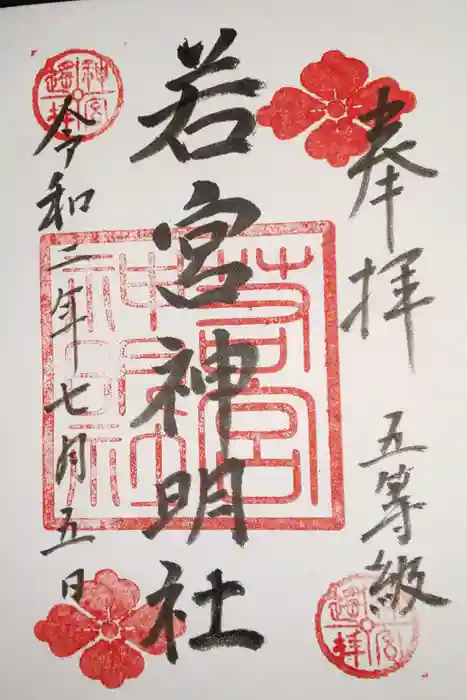 奉拝
五等級
若宮神明社
令和二年七月五日
若宮神明社
神宮遥拝
神宮遥拝